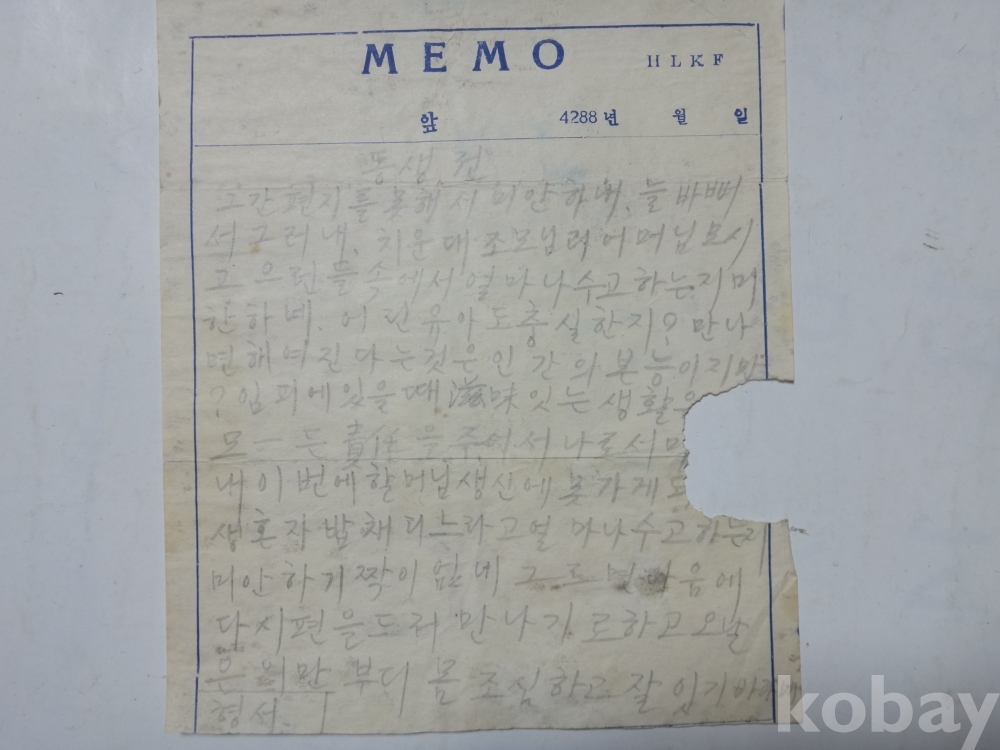 MEMO
HLKF
앞 4288년 월 일
동생 전
그간 편지를 못해서 미안하내. 늘 바뻐
서 그러내. 치운대 조모님과 어머님 모시
고 으린들 속에서 얼마나 수고하는지 미
안하네. 어린 유아도 충실한지? 만나
면 해여진다는것은 인간의 본능이지만
? 임피에 있을 때 滋味잇는 생활을
모ー든 責任을 주어서 나로서
내 이번에 할머님 생신에 못가게
생 혼자 밥 채리느라고 얼마나 수고하는지
미안하기 짝이 없네
다시 편을 드려 만나기로 하고 오날
은 이만 부디 몸 조심하고 잘 있기 바라네
형 서.
kobay